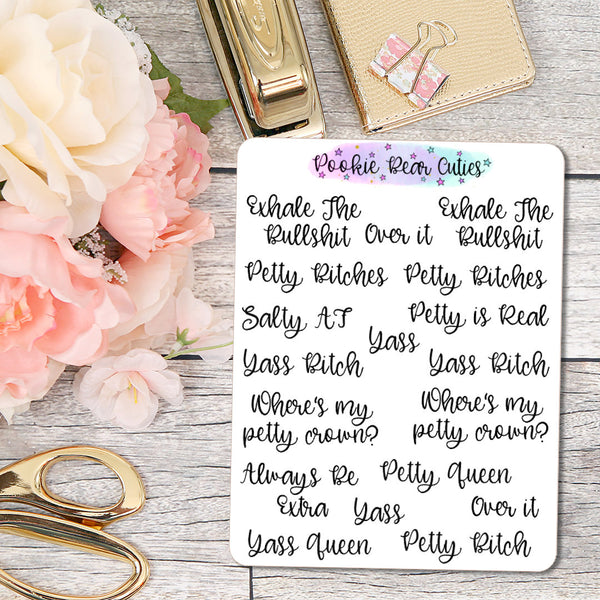 Pookie Bear Cuties
Exhale The
Bullshit
Over it
Exhale The
Bullshit
Petty Bitches
Petty Bitches
Salty AF
Yass
Petty is Real
Yass Bitch
Yass Bitch
Where's my
petty crown?
Where's my
petty crown?
Always Be
Extra
Petty Queen
Yass
Over it
Yass Queen
Petty Bitch